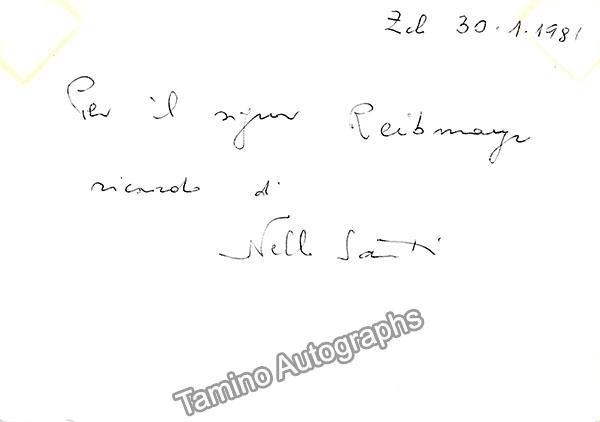 Zch 30.1.1981
Per il signor Reibmayr
ricordo di
Nello Santi
Tamino Autographs